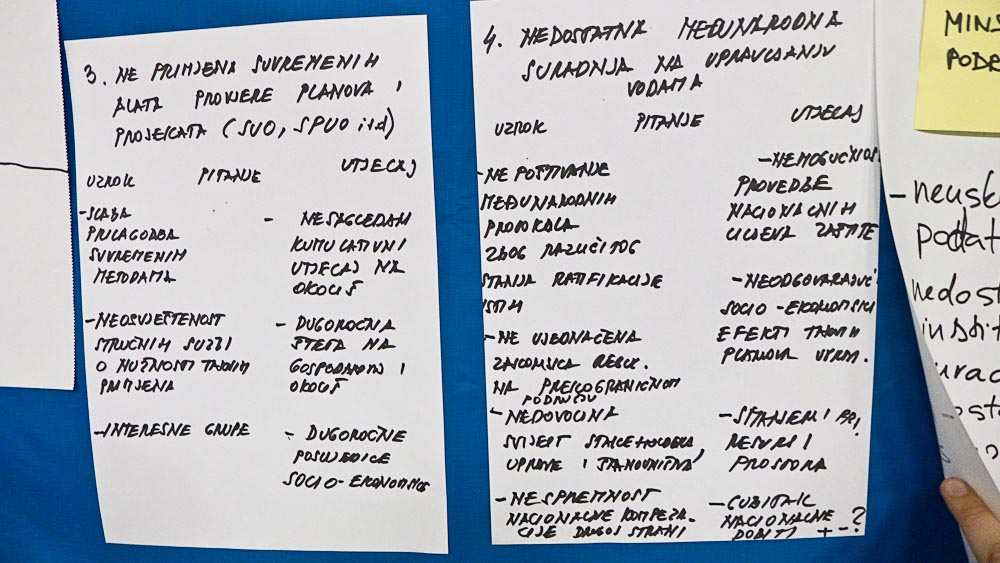 3. NE PRIMJENA SUVREMENIH
ALATA PROVJERE PLANOVA I
PROJEKATA (SUO, SPUO itd)
UZROK PITANJE UTJECAJ
- SLABA
PRILAGODBA
SUVREMENIM
METODAMA
- NEOSVJEŠTENOST
STRUČNIH SLUŽBI
O NUŽNOSTI TAKVIH
PRIMJENA
- INTERESNE GRUPE
- NESAGLEDANI
KUMULATIVNI
UTJECAJ NA
OKOLIŠ
- DUGOROČNA
ŠTETA NA
GOSPODARSTVO I
OKOLIŠ
- DUGOROČNE
POSLJEDICE
SOCIO-EKONOMSKE
4. NEDOSTATNA MEĐUNARODNA
SURADNJA NA UPRAVLJANJU
VODAMA
UZROK PITANJE UTJECAJ
- NE POŠTIVANJE
MEĐUNARODNIH
PROTOKOLA
ZBOG RAZLIČITOG
STANJA RATIFIKACIJE
ISTIH
- NE UJEDNAČENA
ZAKONSKA REGUL.
NA PREKOGRANIČNOM
PODRUČJU
- NEDOVOLJNA
SVIJEST STAKEHOLDERA,
UPRAVE I STANOVNIŠTVA
- NESPREMNOST
NACIONALNE KOMPENZA-
CIJE DRUGOJ STRANI
- NEMOGUĆNOST
PROVEDBE
NACIONALNIH
CILJEVA ZAŠTITE
- NEODGOVARAJUĆI
SOCIO-EKONOMSKI
EFEKTI TAKVIH
PLANOVA UPRAV.
- STANJEM I PRI.
RESURSI I
PROSTORA
- GUBITAK
NACIONALNE
DOBITI + - ?
MINS
PODR
- neusk
podat
nedost
instit
urac